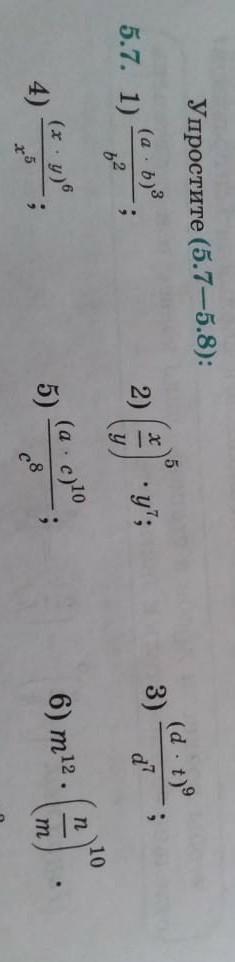 Упростите (5.7—5.8):
5.7. 1) (a · b)³/b²; 2) (x/y)⁵ · y⁷; 3) (d · t)⁹/d⁷;
4) (x · y)⁶/x⁵; 5) (a · c)¹⁰/c⁸; 6) m¹² · (n/m)¹⁰.